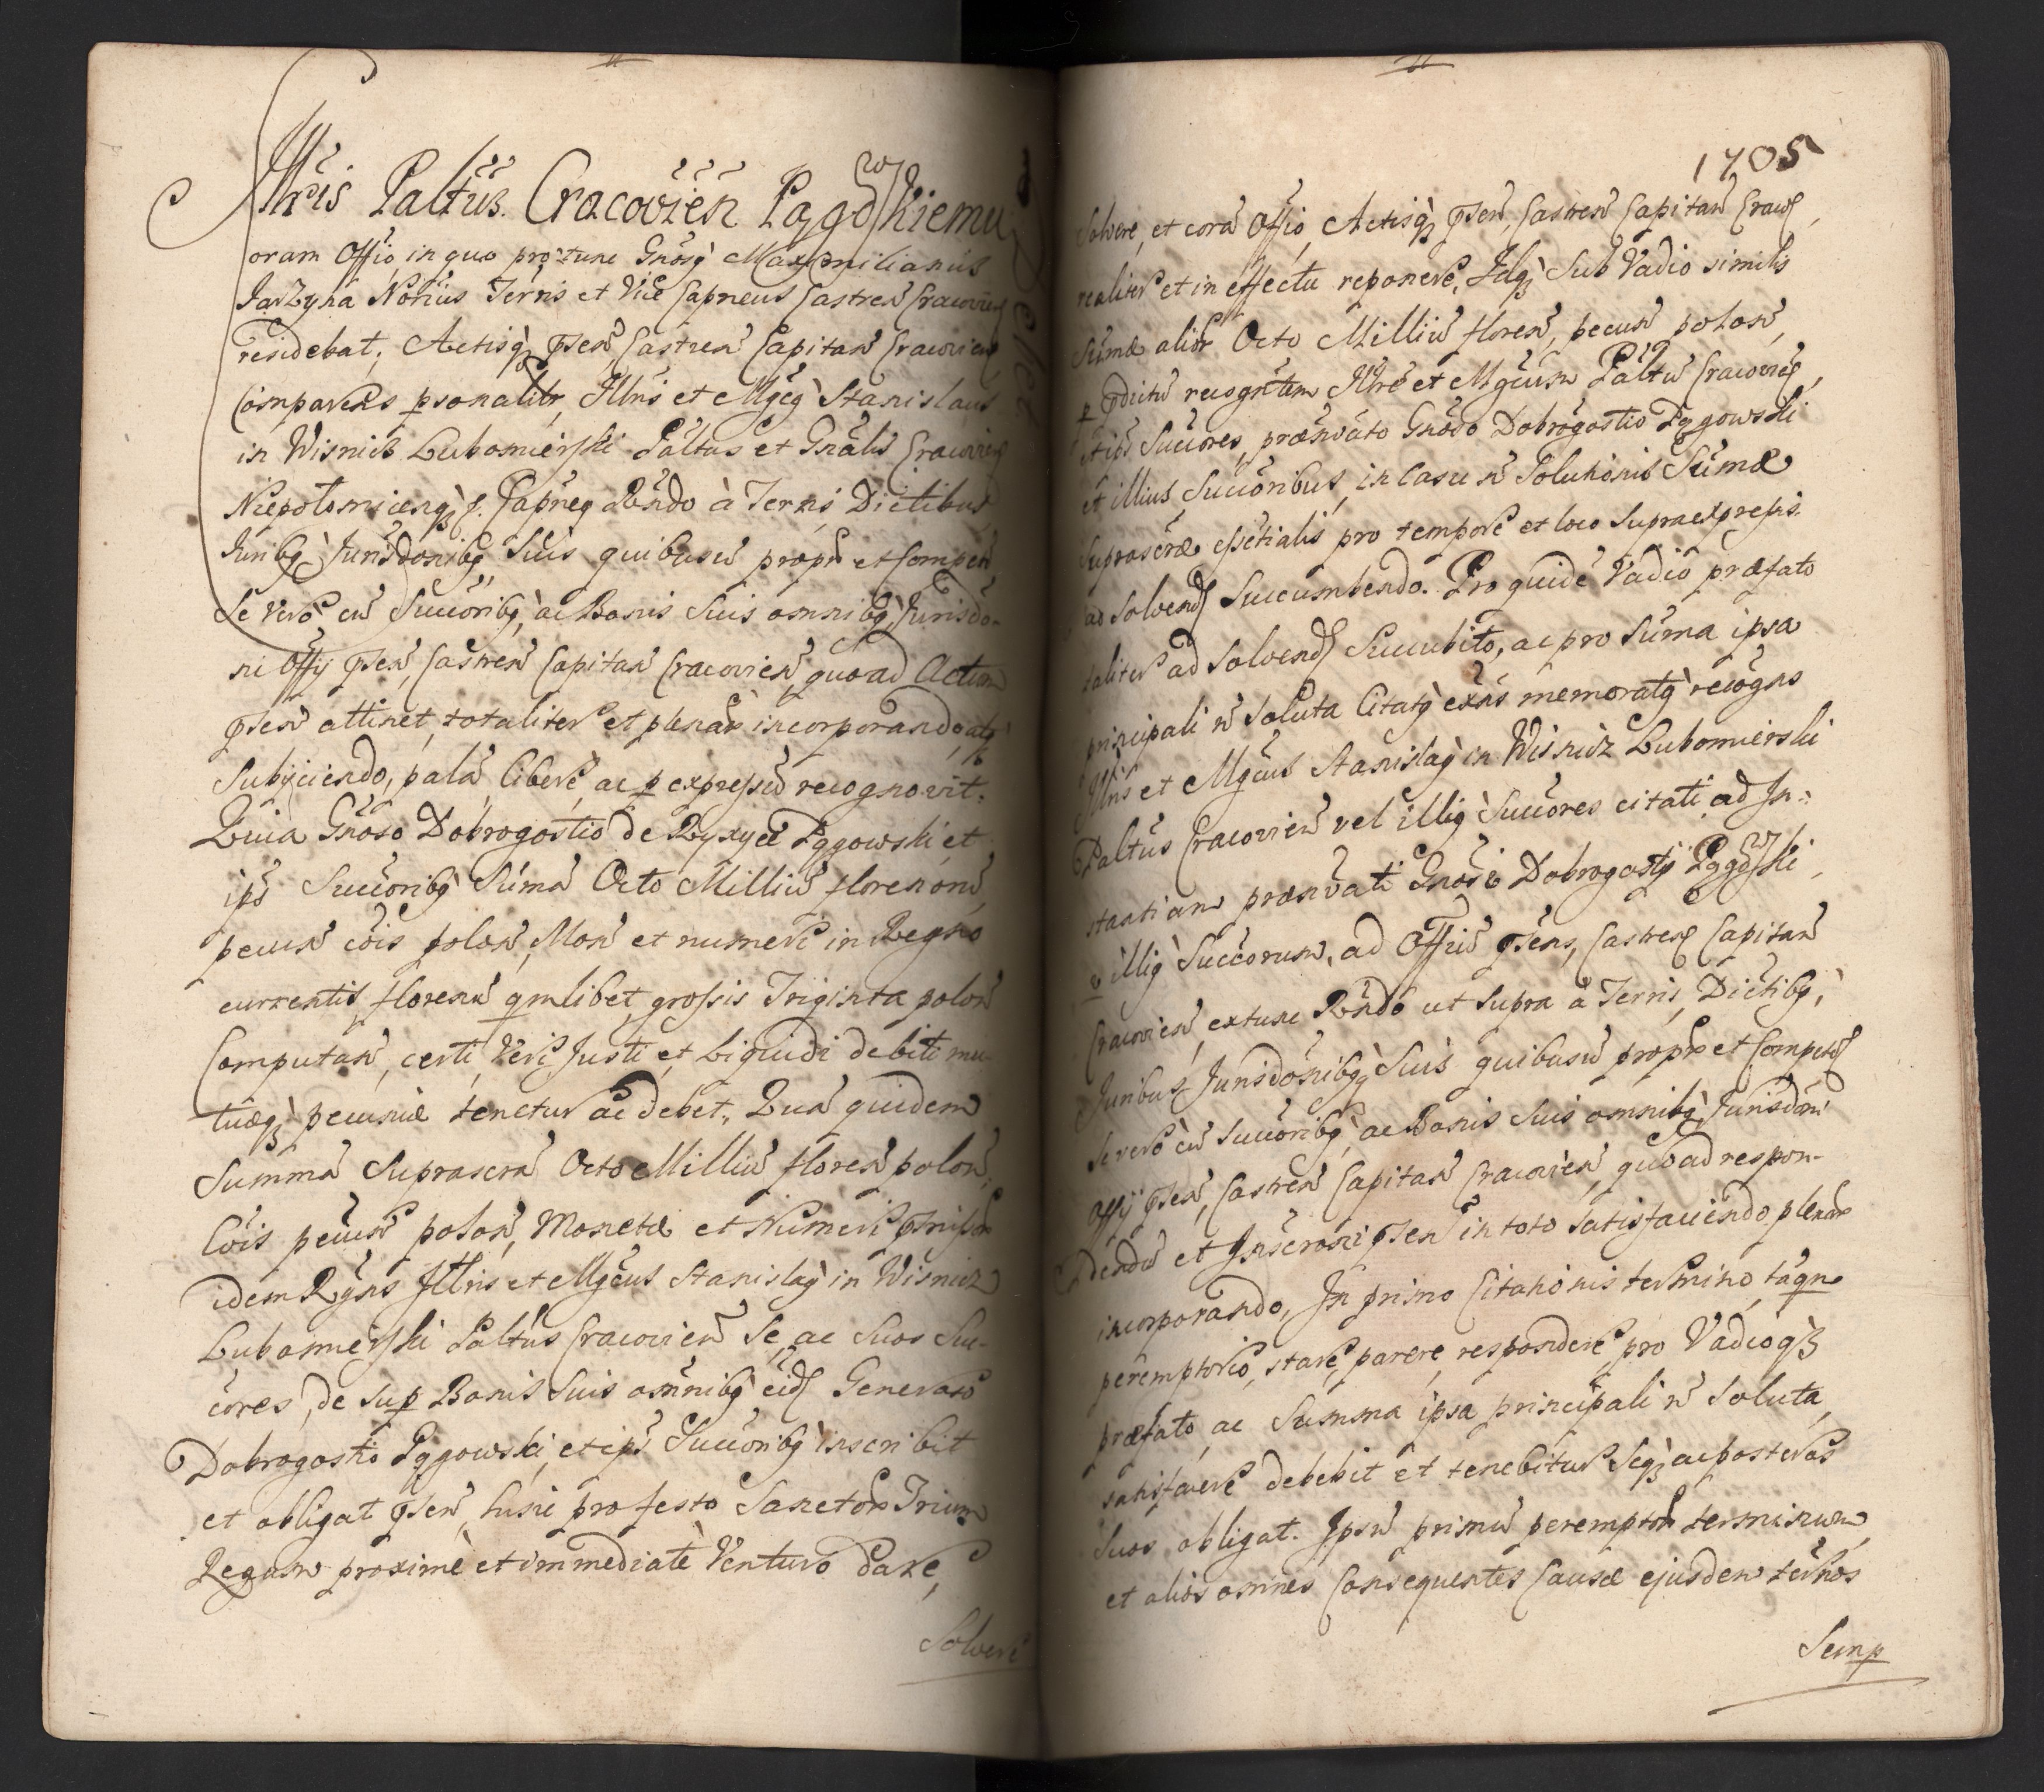 Jllris Paltūs. Cracovień Pągowskiemu
oram Offio in quo protunc Gnōsq Maxymilianus
Jarzyna Norius Terris et Vice Capneus Castreń Cracovień
residebat, Actisq pseń Castreń Capitań Cracovień
Comparens psonalitr, Jllris et Mgcq Stanislaus
in Wisnicz Lubomierski Paltus et Gnalis Cracovień
Niepołomicenq s. Capneq Rńdo à Terris Dictibus
Juribq Jurisdonibq Suis quibusū propr et Compeń
Se Vero cū Succoribq, ac Bonis Suis omnibq, Jurisdo-
ni Offy pseń, Castreń Capitań Cracovień quoad Actum
pseń attinet, totaliter et plenar incorporando, atq
Subijciendo, palā libere, ac p expressū recognovit.
Quia Gnōso Dobrogostio de Pągowski, et
ips Succoribq Sumā Octo Milliū florenorū,
pecuń cois poloń, Moń et numeri in Regno
currentis, florenū qmlibet grossis Triginta poloń
Computań, certi, Veri Justi, et Liquidi debiti mu-
tuæq pecuniæ tenetur ac debet. Quā quidem
Summā Suprascrā Octo Milliū floreń poloń,
Cois pecuń poloń, Monetæ et Numeri pmissor
idem Rgns Jllris et Mgcus Stanislaq in Wisnicz
Lubomierski Paltus Cracovień Se, ac Suos Suc-
cores, de sup Bonis Suis omnibq eid Generoso
Dobrogostio Pągowski, et ips Succoribq inscribit
et obligat pseń, hinc pro festo Sanctor Trium
Regum proximè et immediatè Venturo Dare,
Solvere
1705
Solvere, et corā Offio, Actisq pseń, Castreń Capitań Cracov,
realiter et in effectu reponere, Jdq Sub Vadio similis
Sumæ alior Octo Milliū floreń, pecuń poloń,
p pdictū recogntem Jllre et Mgcum Paltū Cracovień,
et ips Succores, prænoāto Gnōso Dobrogostio Pągowski
et illius Succoribus, in Casu ń Solutionis Sumæ
Suprascræ essētialis pro tempore et loco Supraexpressis
ad Solvend Succumbendo. Pro quidē Vadio præfato
taliter ad Solvend Succubito, ac pro Sumā ipsa
principali ń Soluta Citatq exns memoratq recogns
Jllris et Mgcus Stanislaq in Wisnicz Lubomierski
Paltus Cracovień vel illiq Succores citati ad Jn-
stantiam prænoati Gnosi Dobrogosty Pągowski,
v illiq Succorum, ad Offiū psens, Castreń Capitań
Cracovień, extunc Rńdo ut Supra à Terris, Dictibq,
Juribus Jurisdonibq Suis quibusū propr et Compet
Se vero cū Succoribq, ac Bonis Suis omnibq, Jurisdoni
Offy pseń, Castreń Capitań Cracovień, quoad respon-
dendū et Jnscrōni pseń in toto Satisfaciendo plenar
incorporando, Jn primo Citationis termino, tāqm
peremptorio, stare, parere, respondere, pro Vadioq
præfato, ac Summa ipsa principali ń Soluta,
satisfacere debebit et tenebitur Seq ac posteros
Suos obligat. Jpsū primū peremptor terminum,
et alios omnes Consequentes Causæ ejusdem ternos
Semp